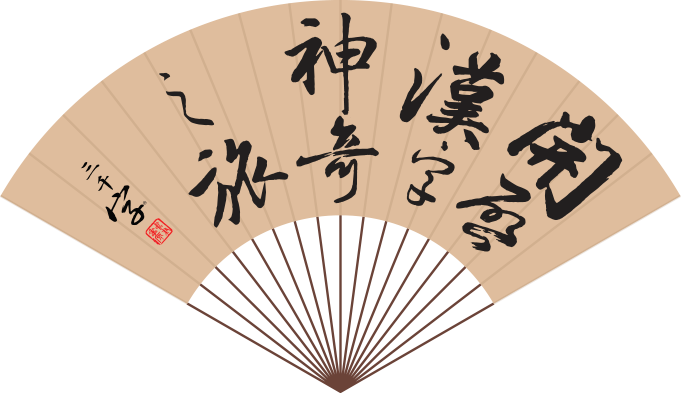 開啟
漢字
神奇
之旅
三千字